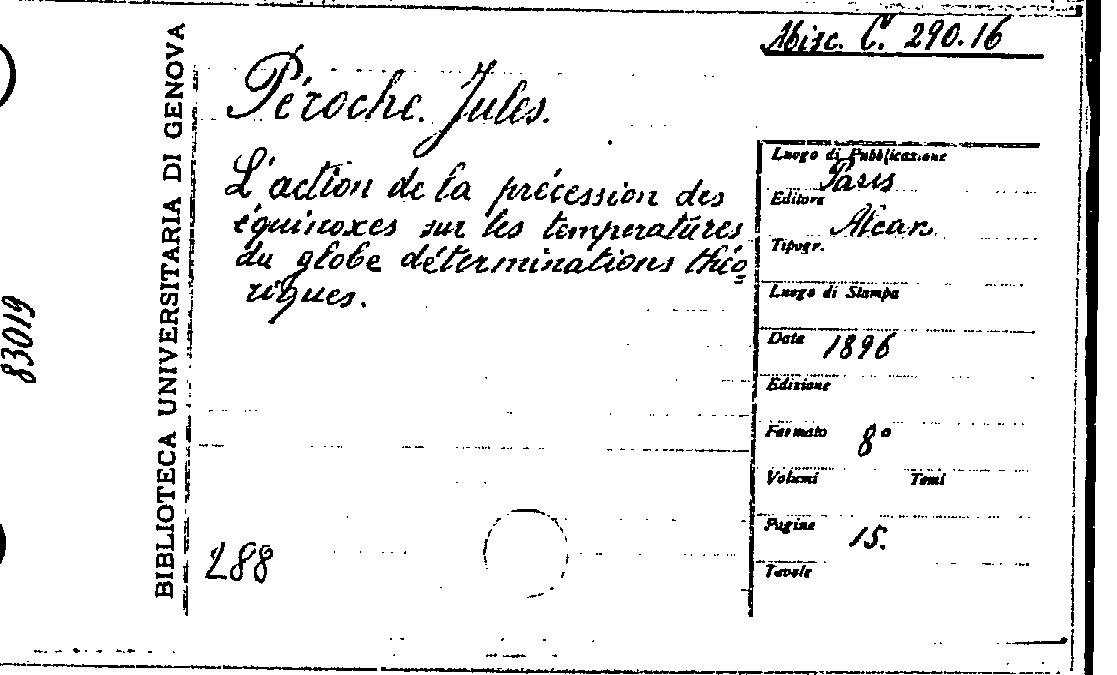 Misc. C. 290.16
Péroche. Jules.
L'action de la précession des
équinoxes sur les temperatures
du globe déterminations théo
riques.
288
BIBLIOTECA UNIVERSITARIA DI GENOVA
83019
Luogo di Pubblicazione
Paris
Editore
Alcan.
Tipogr.
Luogo di Stampa
Data 1896
Edizione
Formato 8°
Volumi Tomi
Pagine 15.
Tavole